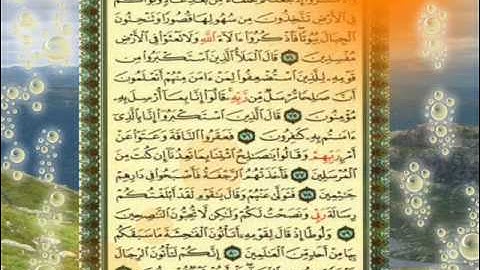 فِى ٱلْأَرْضِ تَتَّخِذُونَ مِن سُهُولِهَا قُصُورًا وَتَنْحِتُونَ
ٱلْجِبَالَ بُيُوتًا فَٱذْكُرُوٓا۟ ءَالَآءَ ٱللَّهِ وَلَا تَعْثَوْا۟ فِى ٱلْأَرْضِ
مُفْسِدِينَ ٧٤ قَالَ ٱلْمَلَأُ ٱلَّذِينَ ٱسْتَكْبَرُوا۟ مِن
قَوْمِهِۦ لِلَّذِينَ ٱسْتُضْعِفُوا۟ لِمَنْ ءَامَنَ مِنْهُمْ أَتَعْلَمُونَ
أَنَّ صَٰلِحًا مُّرْسَلٌ مِّن رَّبِّهِۦ قَالُوٓا۟ إِنَّا بِمَآ أُرْسِلَ بِهِۦ
مُؤْمِنُونَ ٧٥ قَالَ ٱلَّذِينَ ٱسْتَكْبَرُوٓا۟ إِنَّا بِٱلَّذِىٓ
ءَامَنتُم بِهِۦ كَٰفِرُونَ ٧٦ فَعَقَرُوا۟ ٱلنَّاقَةَ وَعَتَوْا۟ عَنْ
أَمْرِ رَبِّهِمْ وَقَالُوا۟ يَٰصَٰلِحُ ٱئْتِنَا بِمَا تَعِدُنَآ إِن كُنتَ مِنَ
ٱلْمُرْسَلِينَ ٧٧ فَأَخَذَتْهُمُ ٱلرَّجْفَةُ فَأَصْبَحُوا۟ فِى دَارِهِمْ
جَٰثِمِينَ ٧٨ فَتَوَلَّىٰ عَنْهُمْ وَقَالَ يَٰقَوْمِ لَقَدْ أَبْلَغْتُكُمْ
رِسَالَةَ رَبِّى وَنَصَحْتُ لَكُمْ وَلَٰكِن لَّا تُحِبُّونَ ٱلنَّٰصِحِينَ
٧٩ وَلُوطًا إِذْ قَالَ لِقَوْمِهِۦٓ أَتَأْتُونَ ٱلْفَٰحِشَةَ مَا سَبَقَكُم
بِهَا مِنْ أَحَدٍ مِّنَ ٱلْعَٰلَمِينَ ٨٠ إِنَّكُمْ لَتَأْتُونَ ٱلرِّجَالَ